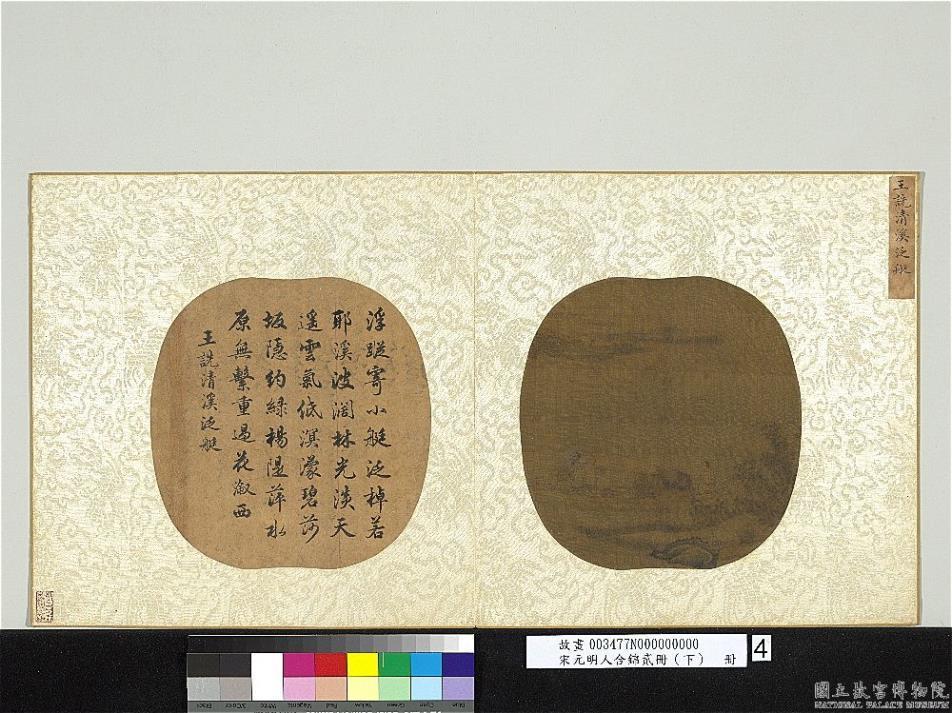 王詵清溪泛艇
浮蹤寄小艇泛棹若
耶溪波濶林光淡天
遥雲氣低溟濛碧莎
坂隱約綠楊隄萍水
原無繫重過花溆西
王詵清溪泛艇
故畫 003477N000000000
宋元明人合錦貳冊(下) 冊
4
Black
3/Color
White
Magenta
Red
Yellow
Green
Cyan
Blue
國立故宮博物院
NATIONAL PALACE MUSEUM